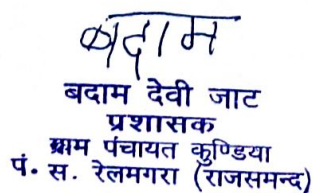 बदाम
बदाम देवी जाट
प्रशासक
ग्राम पंचायत कुण्डिया
पं. स. रेलमगरा (राजसमन्द)